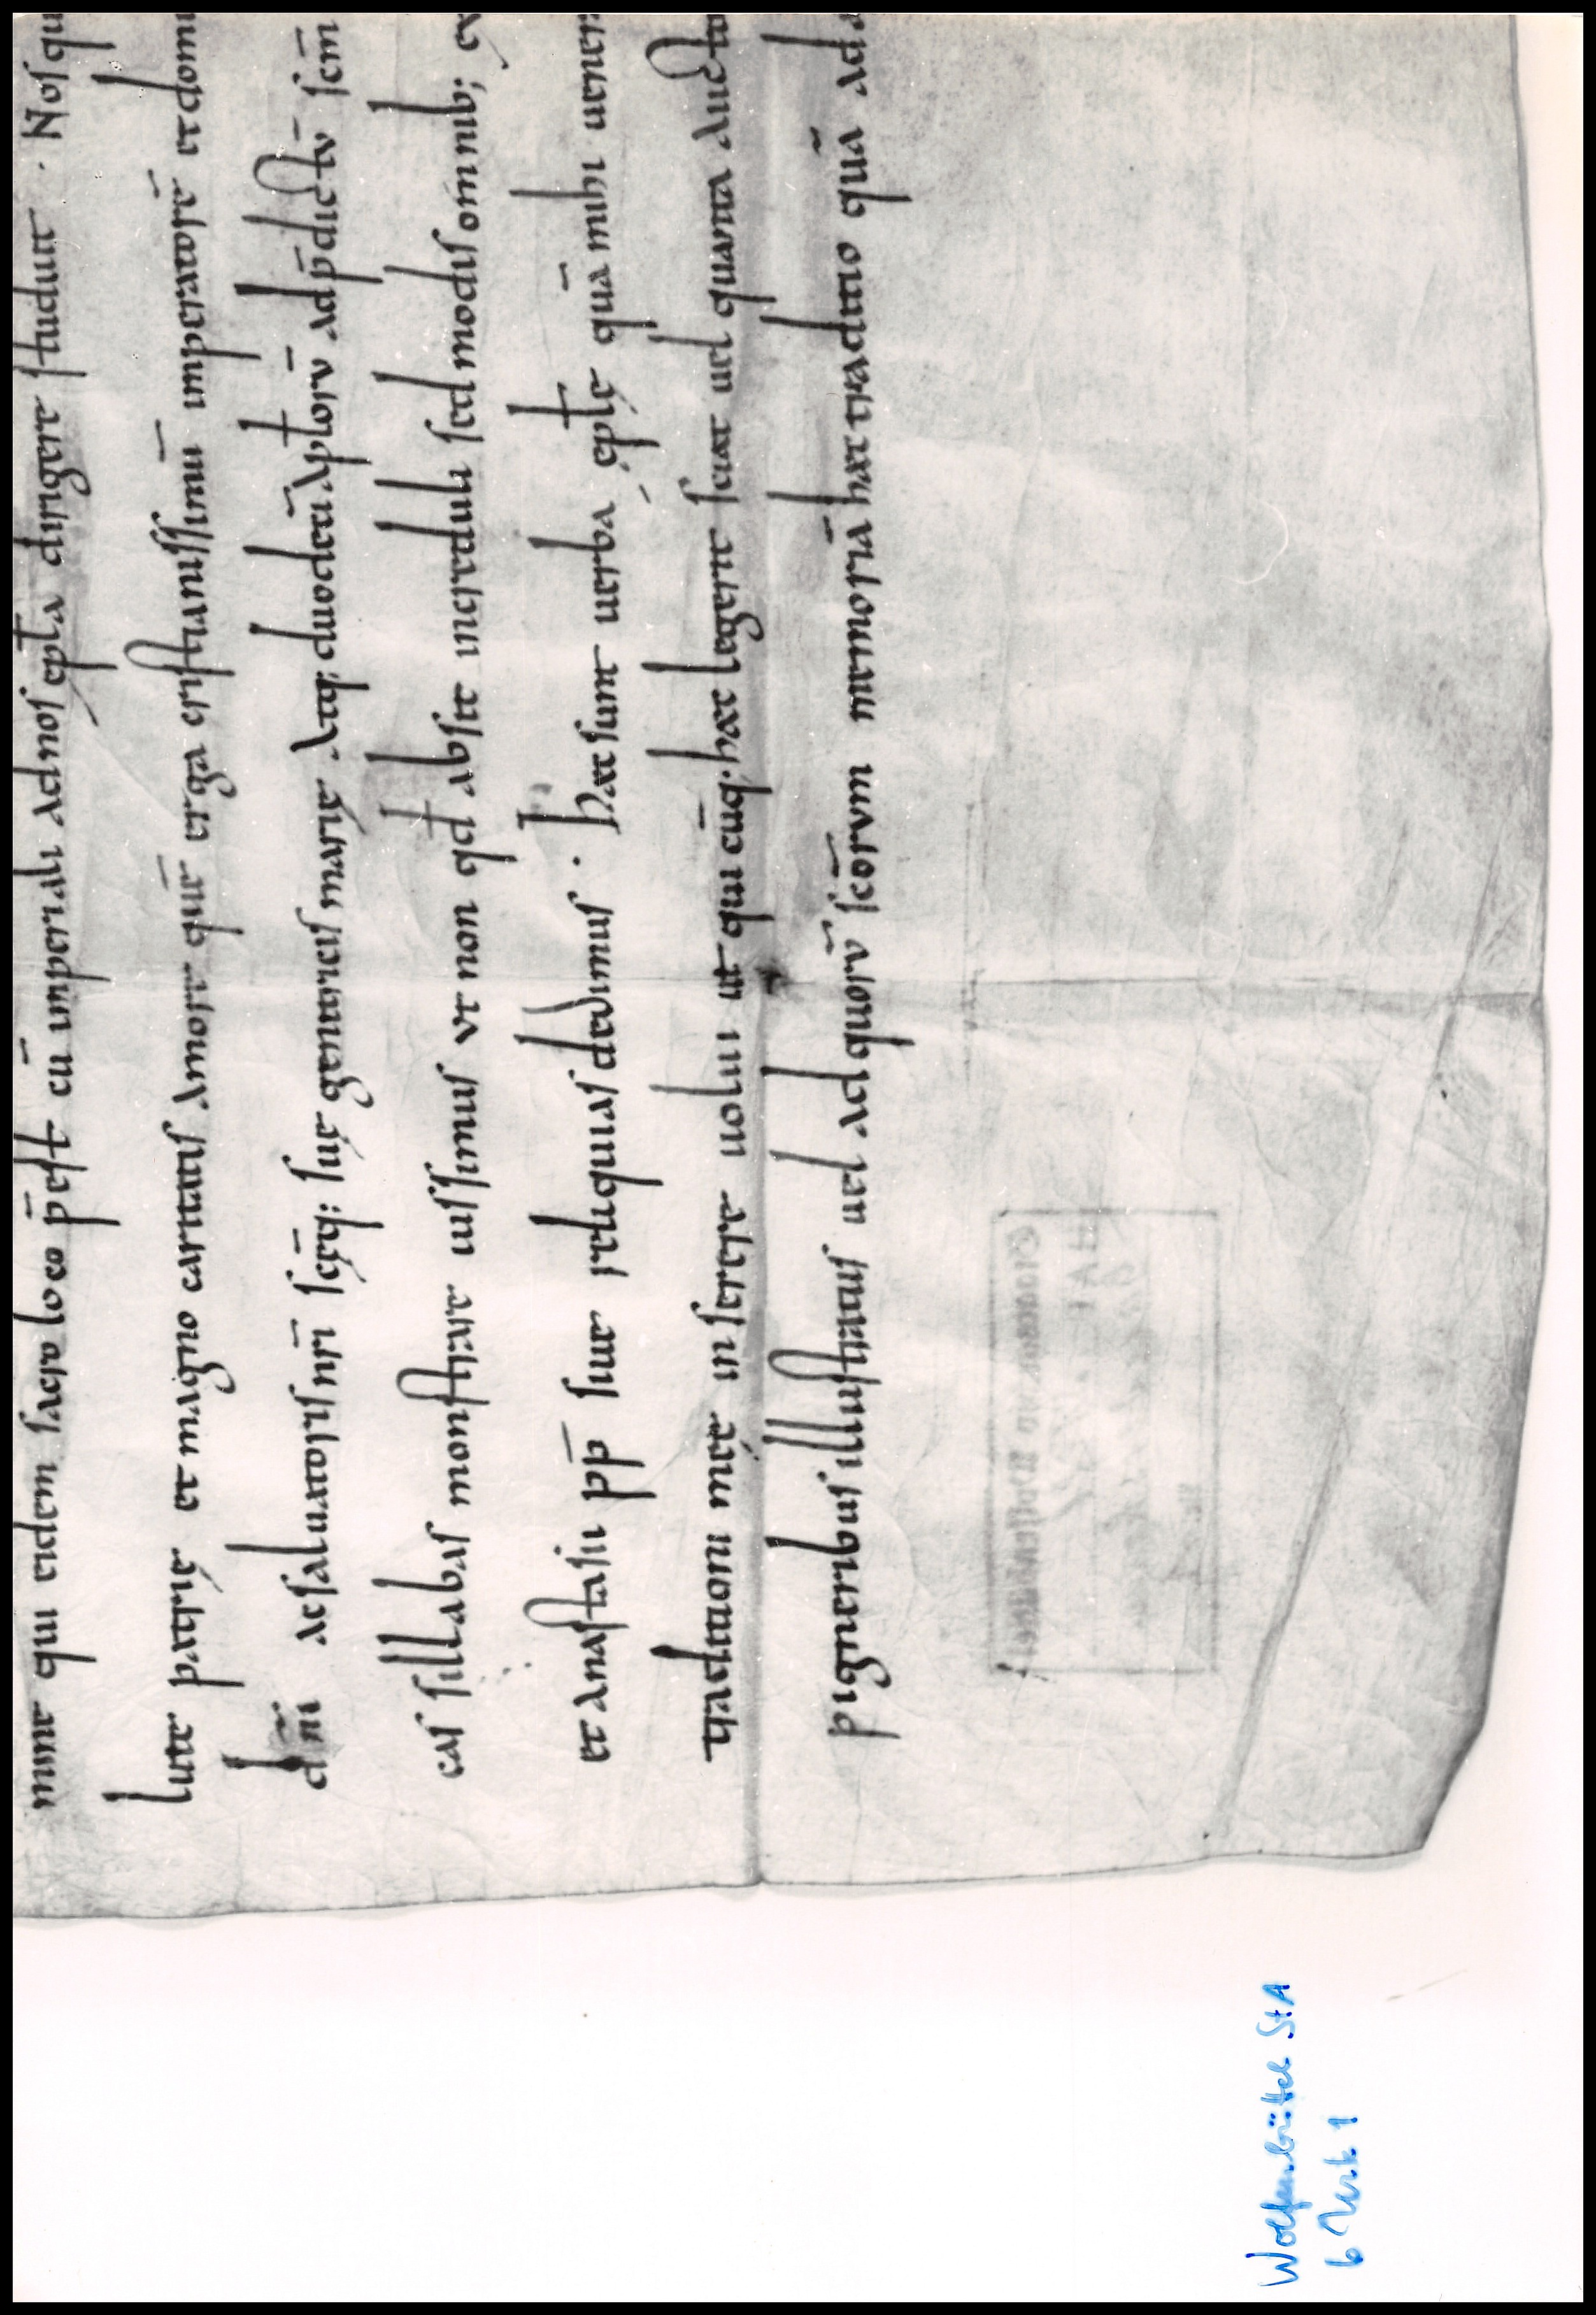 mine qui eidem sacro loco p̄est cū imperiali ad nos ep̄ta dirigere studuit · Nos qu
luit patrię et magno caritatis amore quē erga cristianissimū imperatorē et domi
dn̄i ac saluatoris nr̄i scęq; suę genitricis marię atq; duodecī ap̄lorū ad p̄dictū scm̄
cas sillabas monstrare iussimus vt non qd absit increduli sed modis omnib;
et anastasii pp̄ siue reliquias dedimus · haec sunt uerba ep̄lę quā mihi uener
traditioni meę inserere uolui ut qui cūq; hac legerit sciat uel quanta aucto
pigneribus illustratus uel ad quorū scōrum memoriā haec traditio quā ad
Staatsarchiv Wolfenbüttel
Wolfenbüttel StA
6 Urk 1